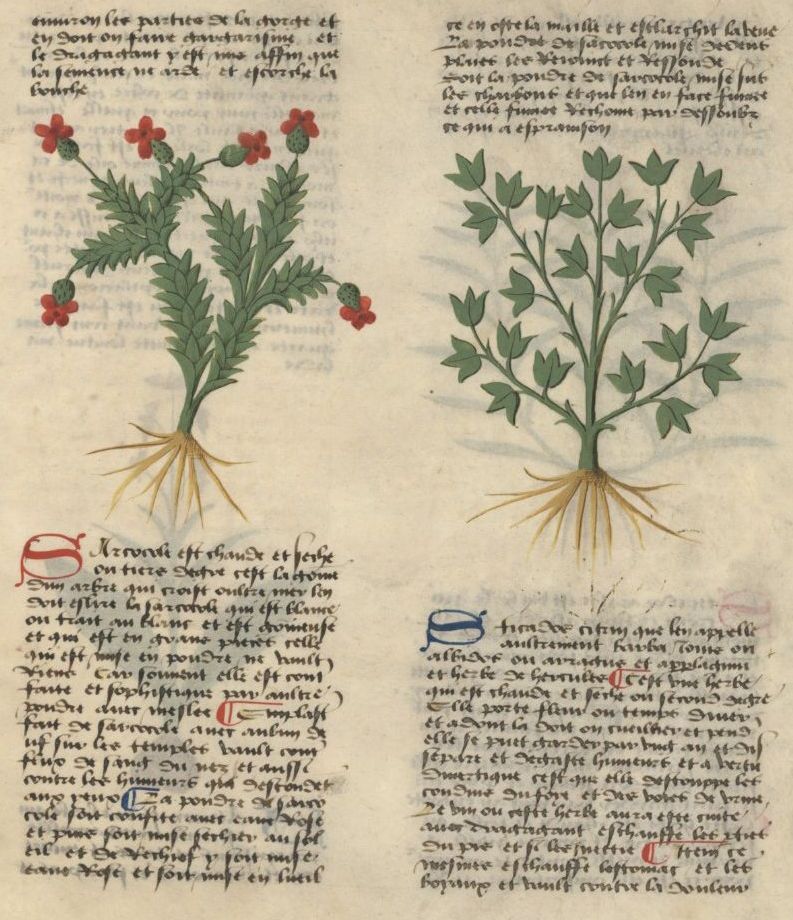 enuiron les parties de la gorge et
en doit on faire gargarisme et
le dragagant y est mis affin que
la semence ne arde et escorche la
bouche
Sarcocole est chaude et seche
ou tiers degre cest la gome
dun arbre qui croist oultre mer len
doit eslire la sarcocole qui est blance
ou trait au blanc et est gomeuse
et qui est en grans pieces celle
qui est mise en poudre ne vault
riens Car souuent elle est cont
faite et sophistique par aultre
poudre auec meslee Emplast
fait de sarcocole auec aubun de
uf sur les temples vault cont
feux de sang du nez et aussi
contre les humeurs qui descendet
aux yeux La poudre de sarco
cole soit confite auec eaue rose
et puis soit mise sechier au sol
eil et de rechief y soit mise
eaue rose et soit mise en lueil
ce en oste la maille et esclarchit la veue
La poudre de sarcocole mise dedens
plaies les reioinct et ressoude
Soit la poudre de sarcocole mise sus
les charbons et que len en face fumee
et celle fumee rechoiue par dessoubz
ce qui a espramson
Sticados citrin que len appelle
aultrement barba Iouis ou
albidos ou et
et herbe de hercules Cest vne herbe
qui est chaude et seche ou second degre
Elle porte fleur ou temps diuer
et adont la doit on cueillier et pend
elle se puet garder par vng an et dis
separe et degaste humeurs et a vertu
diuretique cest que elle destouppe les
conduis du foye et des voies de vrine
Le vin ou ceste herbe aura este cuite
auec dragagant eschauffe les pties
du pis et si les nectie Item ce
mesmes eschauffe lestomac et les
boyaux et vault contre la douleur